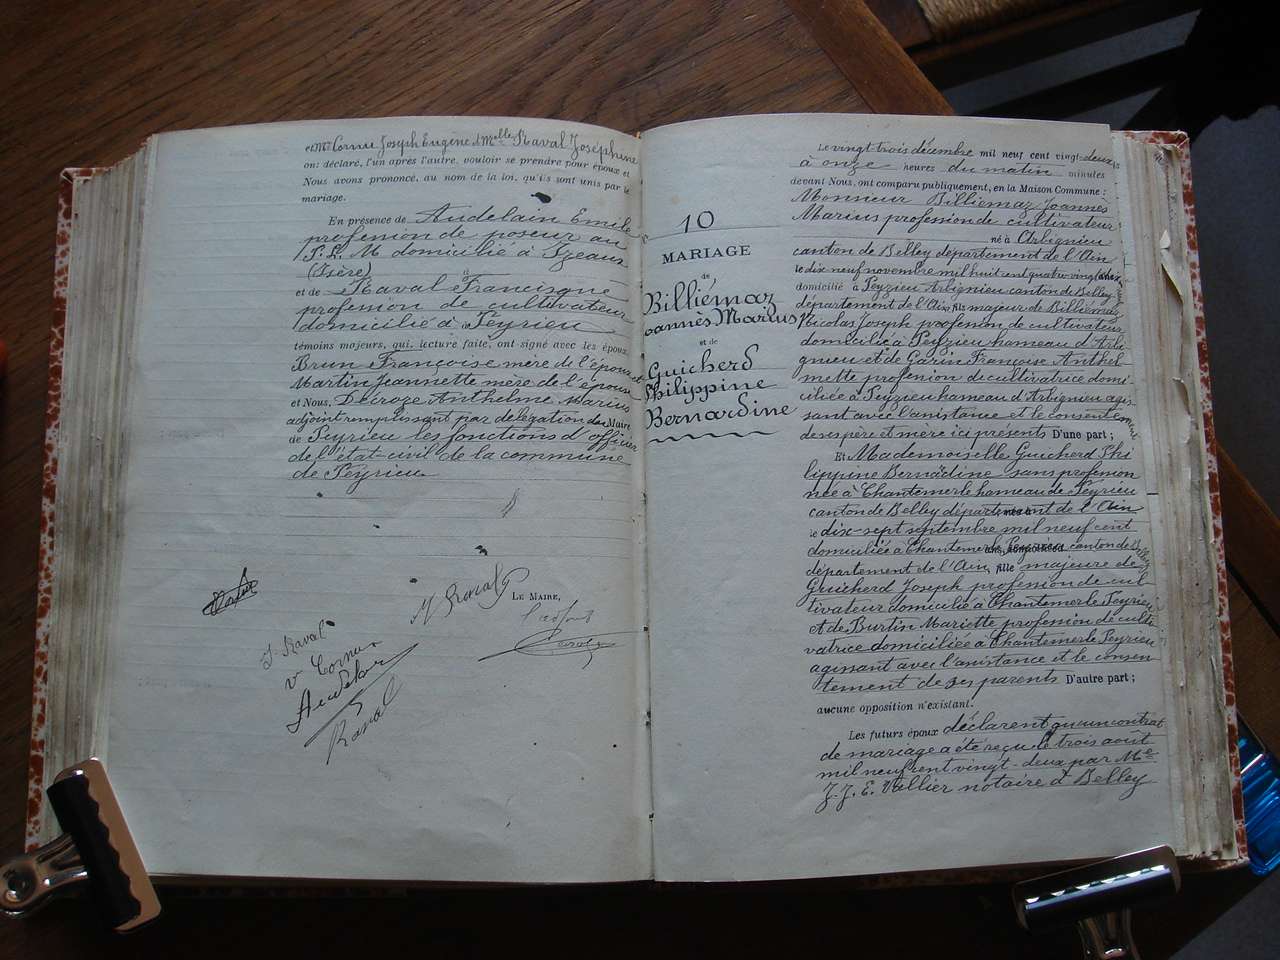 et Mr Cornu Joseph Eugène & Melle Raval Joséphine
ont déclaré, l'un après l'autre, vouloir se prendre pour époux et
Nous avons prononcé, au nom de la loi, qu'ils sont unis par le
mariage.
En présence de Audelain Emile
profession de poseur au
P. L. M domicilié à Izeaux
(Isère)
et de Raval Francisque
profession de cultivateur
domicilié à Peyrieu
témoins majeurs, qui, lecture faite, ont signé avec les époux,
Brun Françoise mère de l'époux et
Martin Jeannette mère de l'épouse
et Nous, Décroze Anthelme Marius
adjoint remplissant par délégation du Maire
de Peyrieu les fonctions d'officier
de l'état-civil de la commune
de Peyrieu.
M Raval
LE MAIRE,
J. Raval
Cornu
Raval
10
MARIAGE
de
Billiémaz
Joannès Marius
et de
Guicherd
Philippine
Bernardine
Le vingt-trois décembre mil neuf cent vingt-deux
à onze heures du matin minutes
devant Nous, ont comparu publiquement, en la Maison Commune :
Monsieur Billiemaz Joannès
Marius profession de cultivateur
né à Arbignieu
canton de Belley département de l'Ain
le dix neuf novembre mil huit cent quatre vingt
domicilié à Peyzieu Arbignieu canton de Belley
département de l'Ain, fils majeur de Billiémaz
Nicolas Joseph profession de cultivateur
domicilié à Peyzieu hameau d'Arbi-
gnieu et de Garin Françoise Anthel
mette profession de cultivatrice domi
ciliée à Peyzieu hameau d'Arbignieu agis
sant avec l'assistance et le consentement
de ses père et mère ici présents D'une part ;
Et Mademoiselle Guicherd Phi
lippine Bernadine sans profession
née à Chantemerle hameau de Peyrieu
canton de Belley département de l'Ain
le dix-sept septembre mil neuf cent
domiciliée à Chantemerle Peyrieu canton de Belley
département de l'Ain, fille majeure de
Guicherd Joseph profession de cul-
tivateur domicilié à Chantemerle Peyrieu
et de Burtin Mariette profession de culti
vatrice domiciliée à Chantemerle Peyrieu
agissant avec l'assistance et le consen-
tement de ses parents D'autre part ;
aucune opposition n'existant.
Les futurs époux déclarent qu'un contrat
de mariage a été reçu le trois août
mil neuf cent vingt-deux par Me
J. J. E. Vallier notaire à Belley